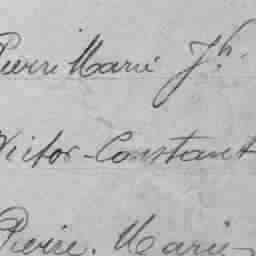 Pierre Marie Jh.
Victor-Constant
Pierre. Marie